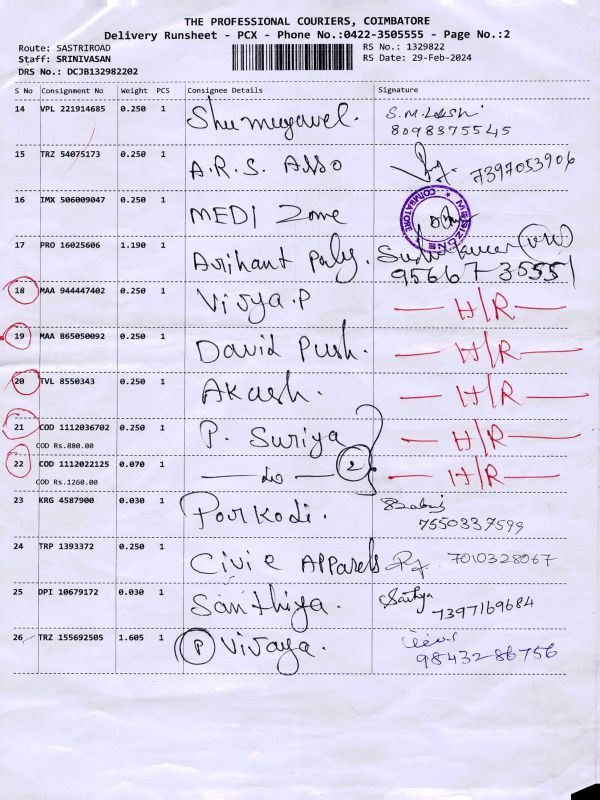 THE PROFESSIONAL COURIERS, COIMBATORE
Delivery Runsheet - PCX - Phone No.:0422-3505555 - Page No.:2
Route: SASTRIROAD RS No.: 1329822
Staff: SRINIVASAN RS Date: 29-Feb-2024
DRS No.: DCJB132982202
S No Consignment No Weight PCS Consignee Details Signature
14 VPL 221914685 0.250 1 Shumugavel.
8098375545
15 TRZ 54075173 0.250 1 A.R.S. Asso 7397053906
16 IMX 506009047 0.250 1 MEDI Zone COIMBATORE
17 PRO 16025606 1.190 1 Arihant Poly.
95667 35551
18 MAA 944447402 0.250 1 Vijya.P — H/R —
19 MAA 865050092 0.250 1 David Push. — H/R —
20 TVL 8550343 0.250 1 Akash. — H/R —
21 COD 1112036702 0.250 1 P. Suriya — H/R —
COD Rs.880.00
22 COD 1112022125 0.070 1 — do — 2 — H/R —
COD Rs.1260.00
23 KRG 4587900 0.030 1 Porkodi.
7550337599
24 TRP 1393372 0.250 1 Civic Apparels 7010328067
25 DPI 10679172 0.030 1 Santhiya. Sathya
7397169684
26 TRZ 155692505 1.605 1 P Vijaya.
9843286756